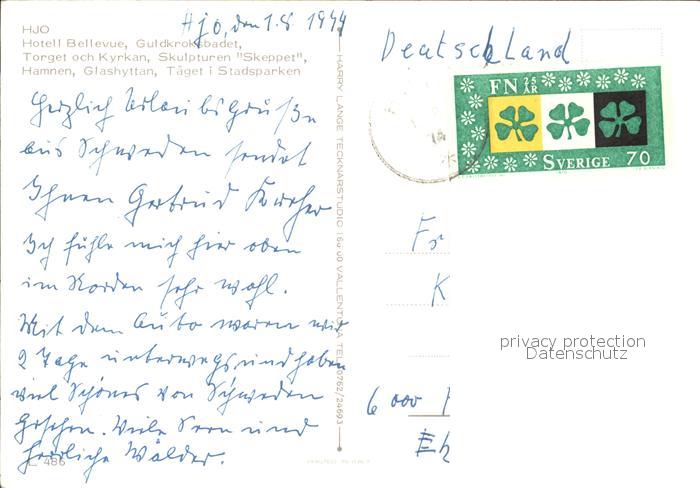 HJO
Hotell Bellevue, Guldkroksbadet,
Torget och Kyrkan, Skulpturen "Skeppet",
Hamnen, Glashyttan, Tåget i Stadsparken
Hjo, den 1.8 1977
Herzlich Urlaubsgrüße
aus Schweden sendet
Ihnen Gertrud
Ich fühle mich hier oben
im Norden sehr wohl.
Mit dem Auto waren wir
2 Tage unterwegs und haben
viel Schönes von Schweden
gesehen. Viele Seen und
herrliche Wälder.
L 486
HARRY LANGE TECKNARSTUDIO 186 00 VALLENTUNA TEL. 0762/24693
Deutschland
FN 25 ÅR
SVERIGE 70
Fr
K
privacy protection
Datenschutz
6000